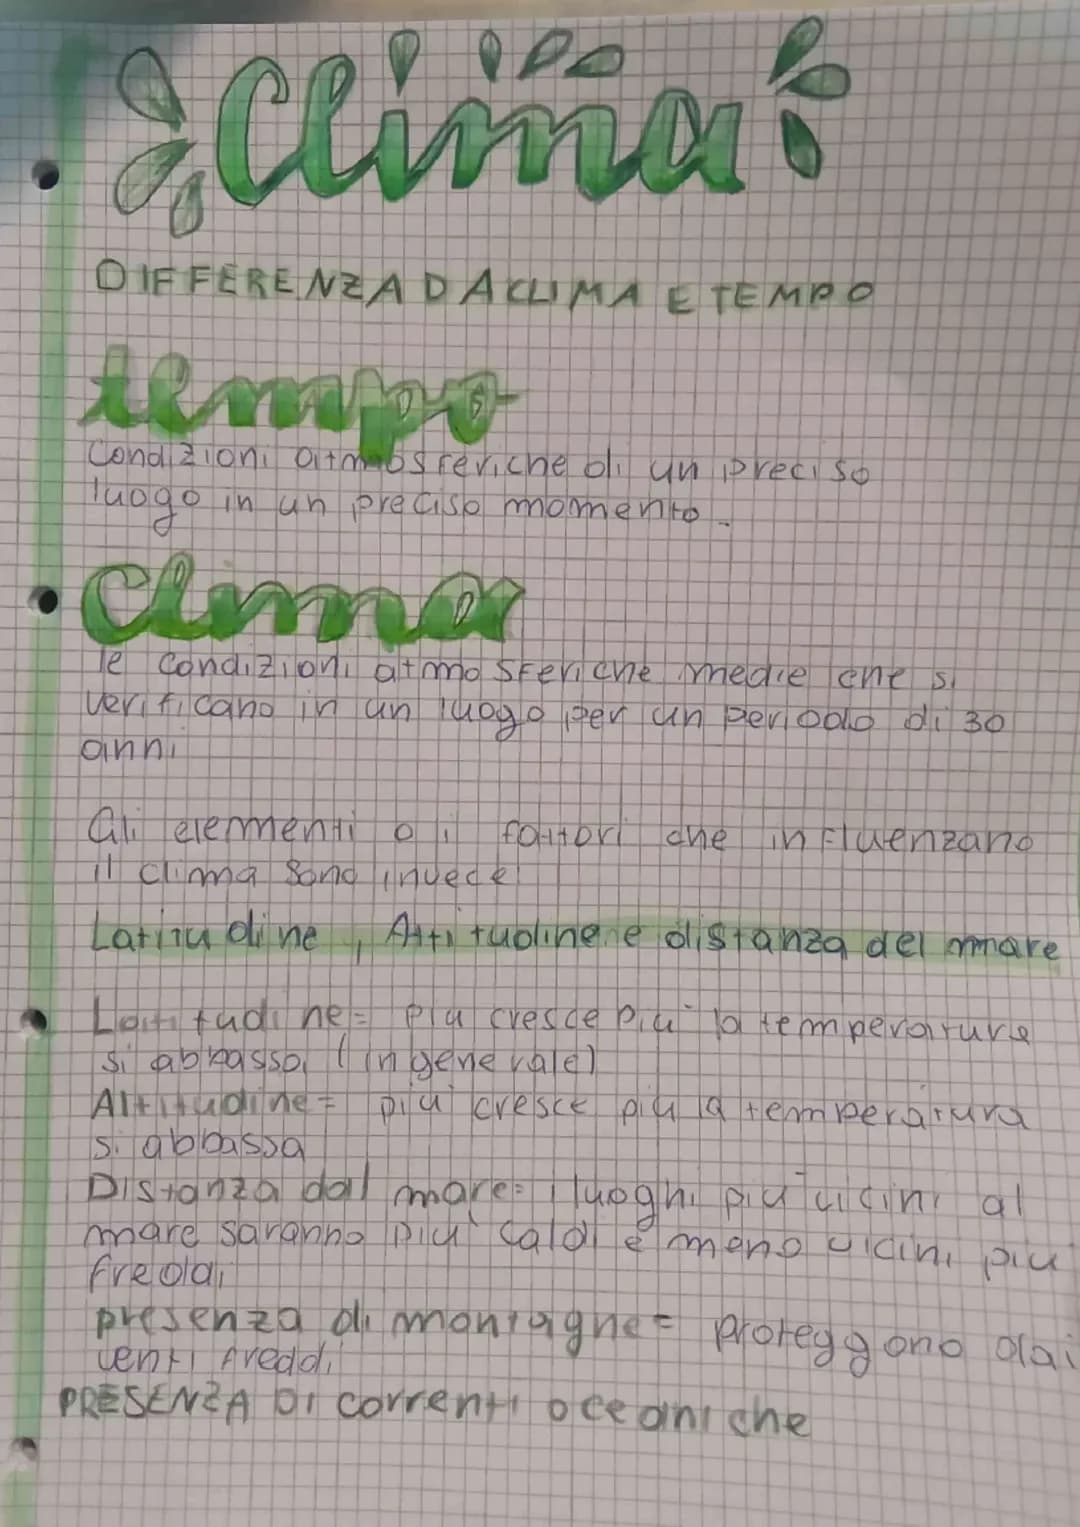 Clima
DIFFERENZA DA CLIMA E TEMPO
tempo
Condizioni atmosferiche di un preciso
luogo in un preciso momento.
Clima
le condizioni atmosferiche medie che si
verificano in un luogo per un periodo di 30
anni
Gli elementi o i fattori che influenzano
il clima sono invece
Latitudine, Altitudine e distanza del mare
Latitudine= più cresce più la temperatura
si abbassa (in generale)
Altitudine= più cresce più la temperatura
si abbassa
Distanza dal mare= i luoghi più vicini al
mare saranno più caldi e meno vicini più
freddi
presenza di montagne= proteggono dai
venti freddi
PRESENZA DI correnti oceaniche